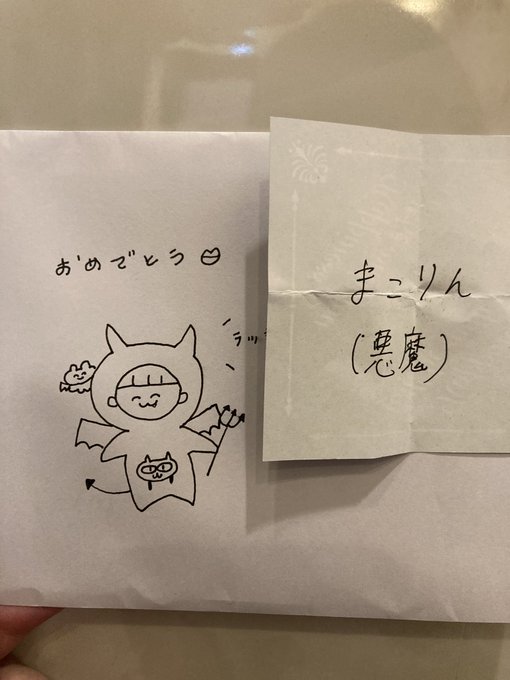 おめでとう
ラッ
まこりん
(悪魔)